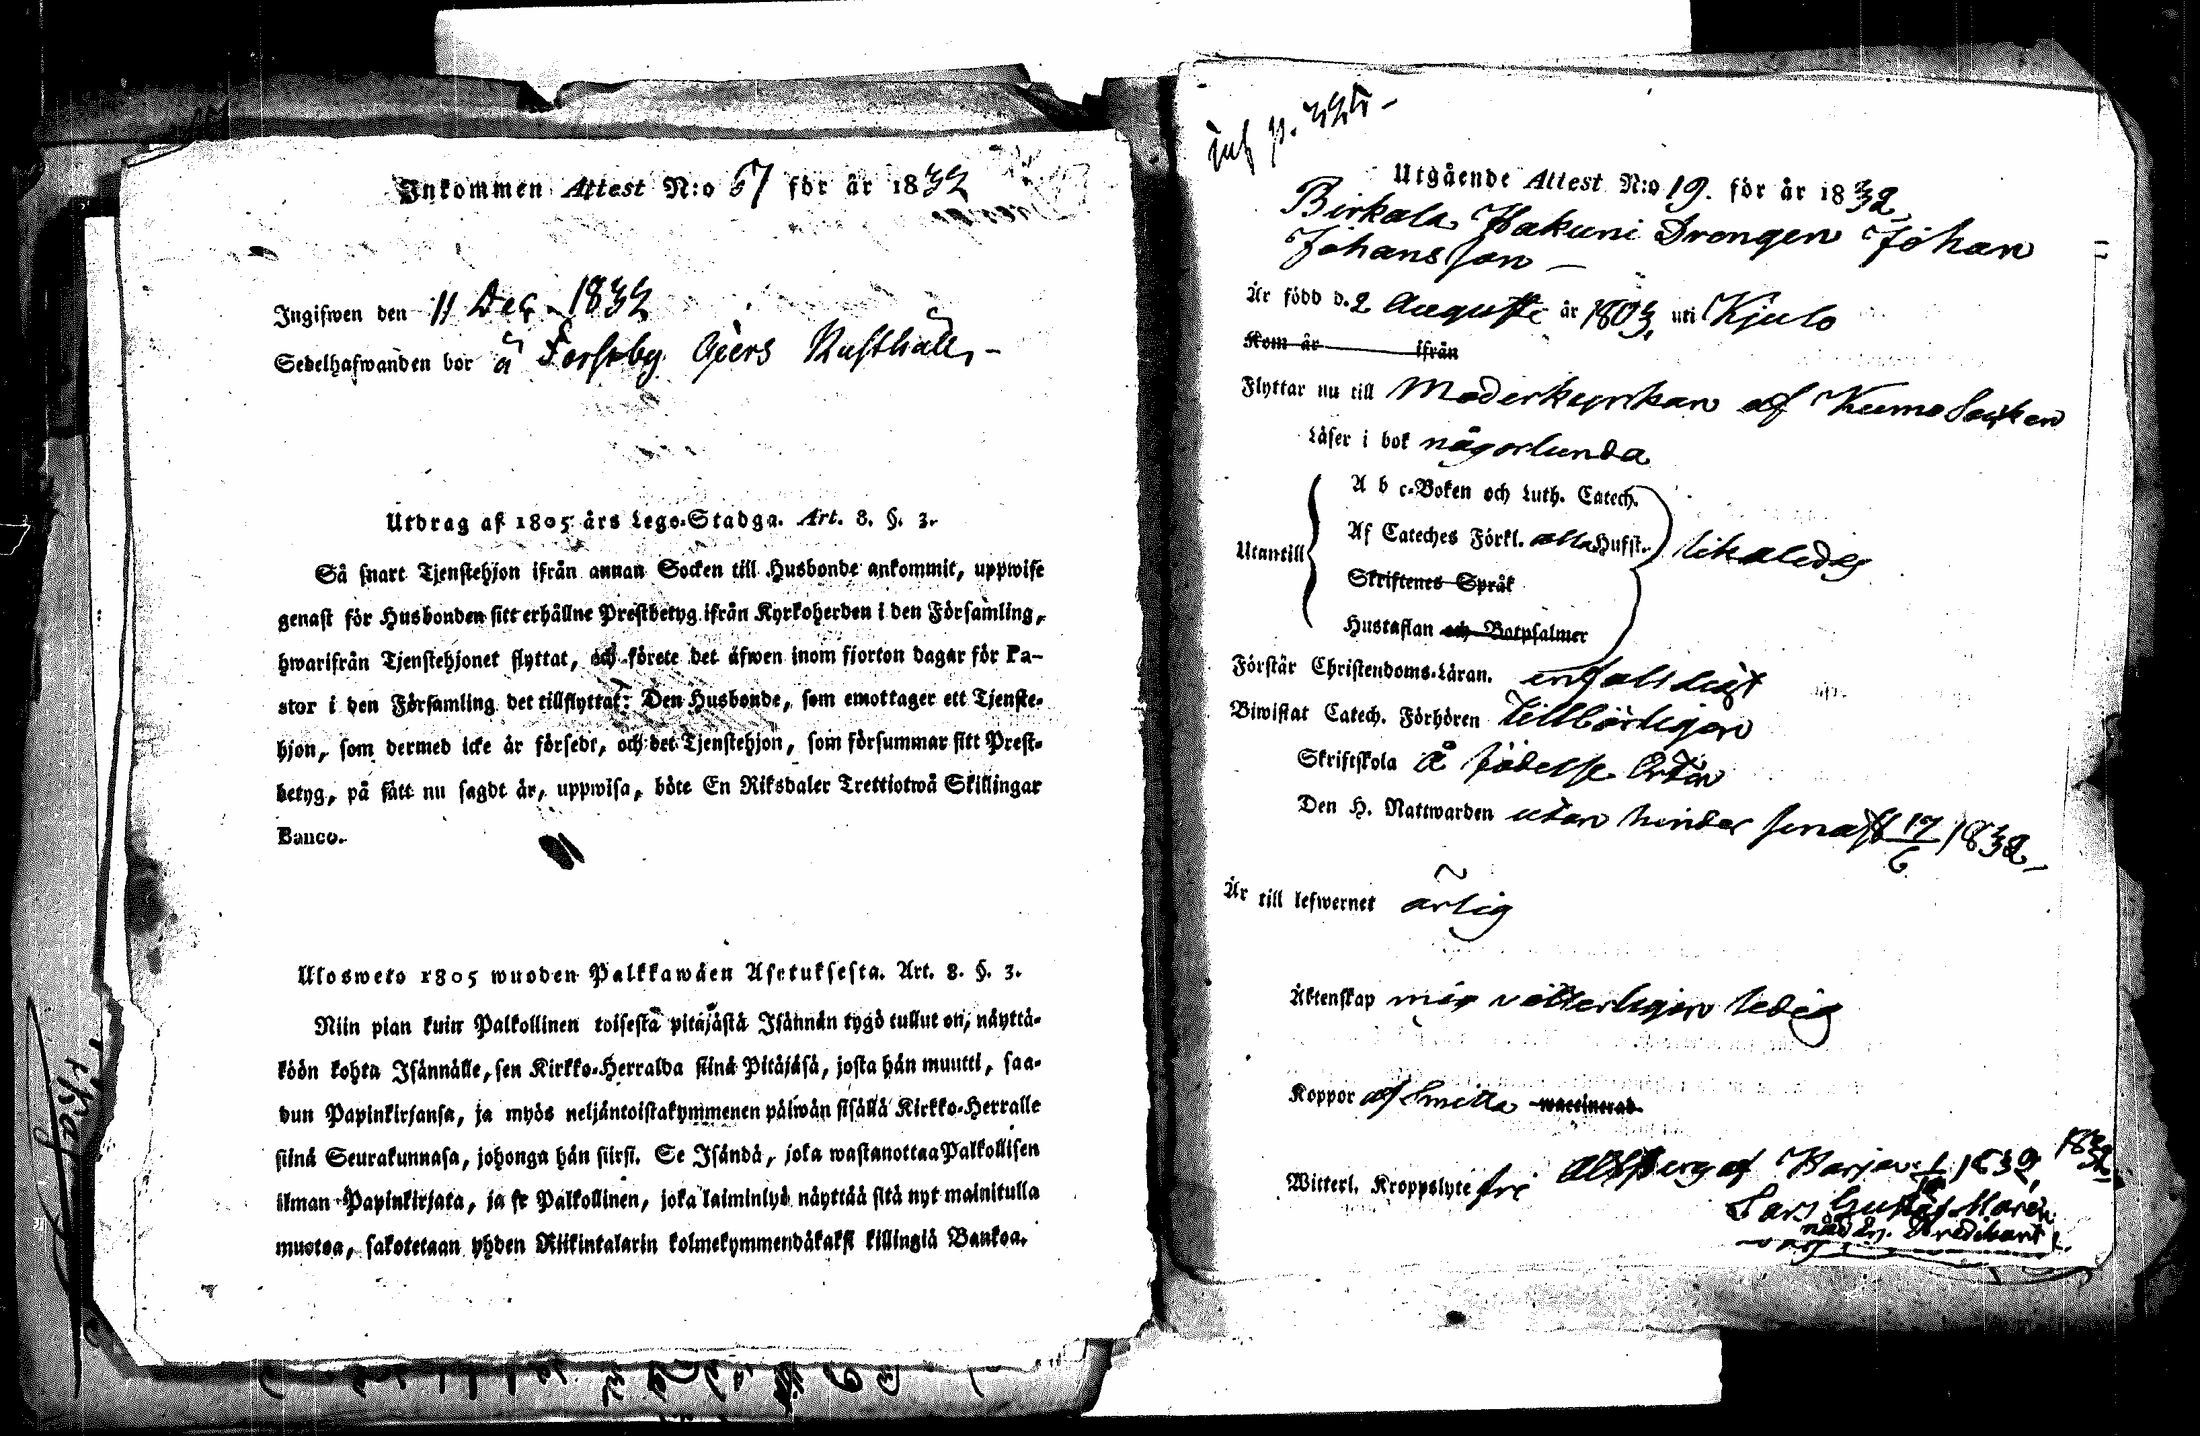 Inkommen Attest N:o 67 för år 1832
Ingifwen den 11 Dec. 1832
Sedelhafwanden bor å Forsby Giers Rusthåll,
Utdrag af 1805 års Lego-Stadga. Art. 8. §. 3.
Så snart Tjenstehjon ifrån annan Socken till Husbonde ankommit, uppwise
genast för Husbonden sitt erhållne Prestbetyg ifrån Kyrkoherden i den Församling,
hwarifrån Tjenstehjonet flyttat, och förete det äfwen inom fjorton dagar för Pa-
stor i den Församling det tillflyttat: Den Husbonde, som emottager ett Tjenste-
hjon, som dermed icke är försedt, och det Tjenstehjon, som försummar sitt Prest-
betyg, på sätt nu sagdt är, uppwisa, böte En Riksdaler Trettiotwå Skillingar
Banco.
Ulosweto 1805 wuoden Palkkawäen Asetuksesta. Art. 8. §. 3.
Niin pian kuin Palkollinen toisesta pitäjästä Isännän tygö tullut on, näyttä-
köön kohta Isännälle, sen Kirkko-Herralda siinä Pitäjäsä, josta hän muutti, saa-
dun Papinkirjansa, ja myös neljäntoistakymmenen päiwän sisällä Kirkko-Herralle
siinä Seurakunnasa, johonga hän siirsi. Se Isändä, joka wastanottaa Palkollisen
ilman Papinkirjata, ja se Palkollinen, joka laiminlyö näyttää sitä nyt mainitulla
muotoa, sakotetaan yhden Riikintalarin kolmekymmendäkaksi killingiä Bankoa.
Utgående Attest N:o 19. för år 1832,
Birkala Hakuni Drengen Johan
Johansson
Är född d. 2 Augusti år 1803, uti Kjulo
Kom år ifrån
Flyttar nu till Moderkyrkan af Kumo Socken
Läser i bok någorlunda
A b c-Boken och Luth. Catech.
Utantill Af Cateches Förkl. alla Husst. likaledes
Skriftenes Språk
Hustaflan och Botpsalmer
Förstår Christendoms-Läran. enfaldigt
Biwistat Catech. Förhören tillbörligen
Skriftskola å födelse Orten
Den H. Nattwarden utan hinder senast 17/6 1832
Är till lefwernet ärlig
Äktenskap mig vitterligen ledig
Koppor af Smitta waccinerad
Witterl. Kroppslyte fri
1832
Lars Gustaf
Predikant